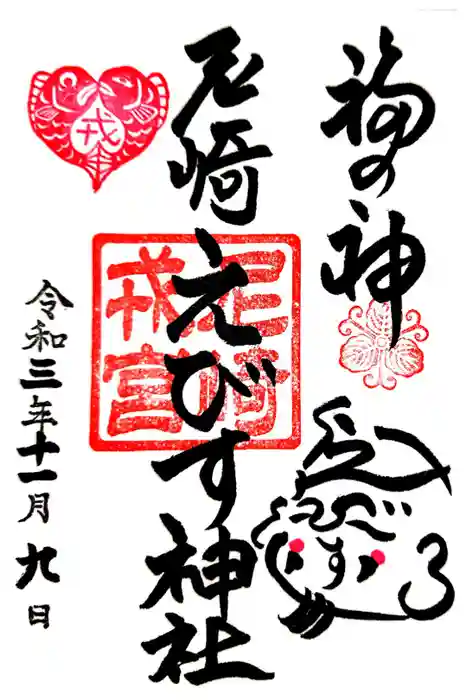 福の神
尼崎えびす神社
尼崎
戎宮
戎
えびす
令和三年十一月九日